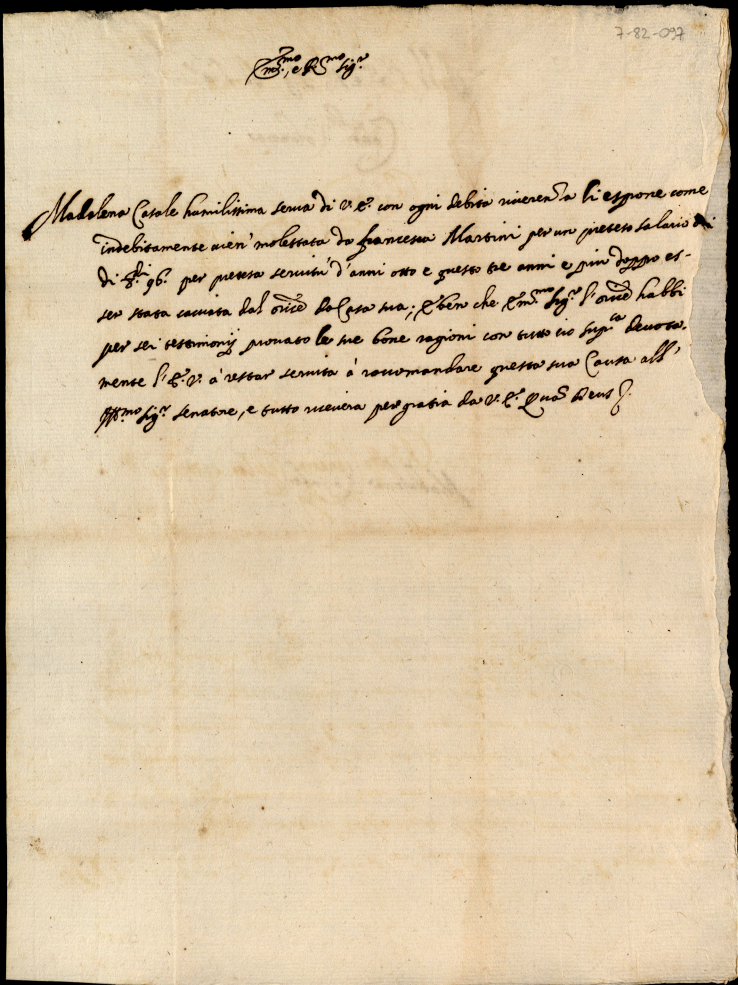 7-82-097
Em.mo, e R.mo Sig.r
Madalena Casale humilissima serva di V. E. con ogni debita riverenza li espone come
indebitamente vien' molestata da Francesca Martini per un preteso salario di
di 96. per pretesa servitù d'anni otto e questo tre anni e più doppo es-
ser stata cacciata dal Casa sua; ben che Em.mo Sig.r l' habbi
per sei testimonij provato le sue bone ragioni con tutto cio sup.ca devota-
mente l'E. V. à restar servita à raccomandare questa sua Causa all'
Ill.mo Sig.r senatore, e tutto riceverà per gratia da V. E. Quam Deus